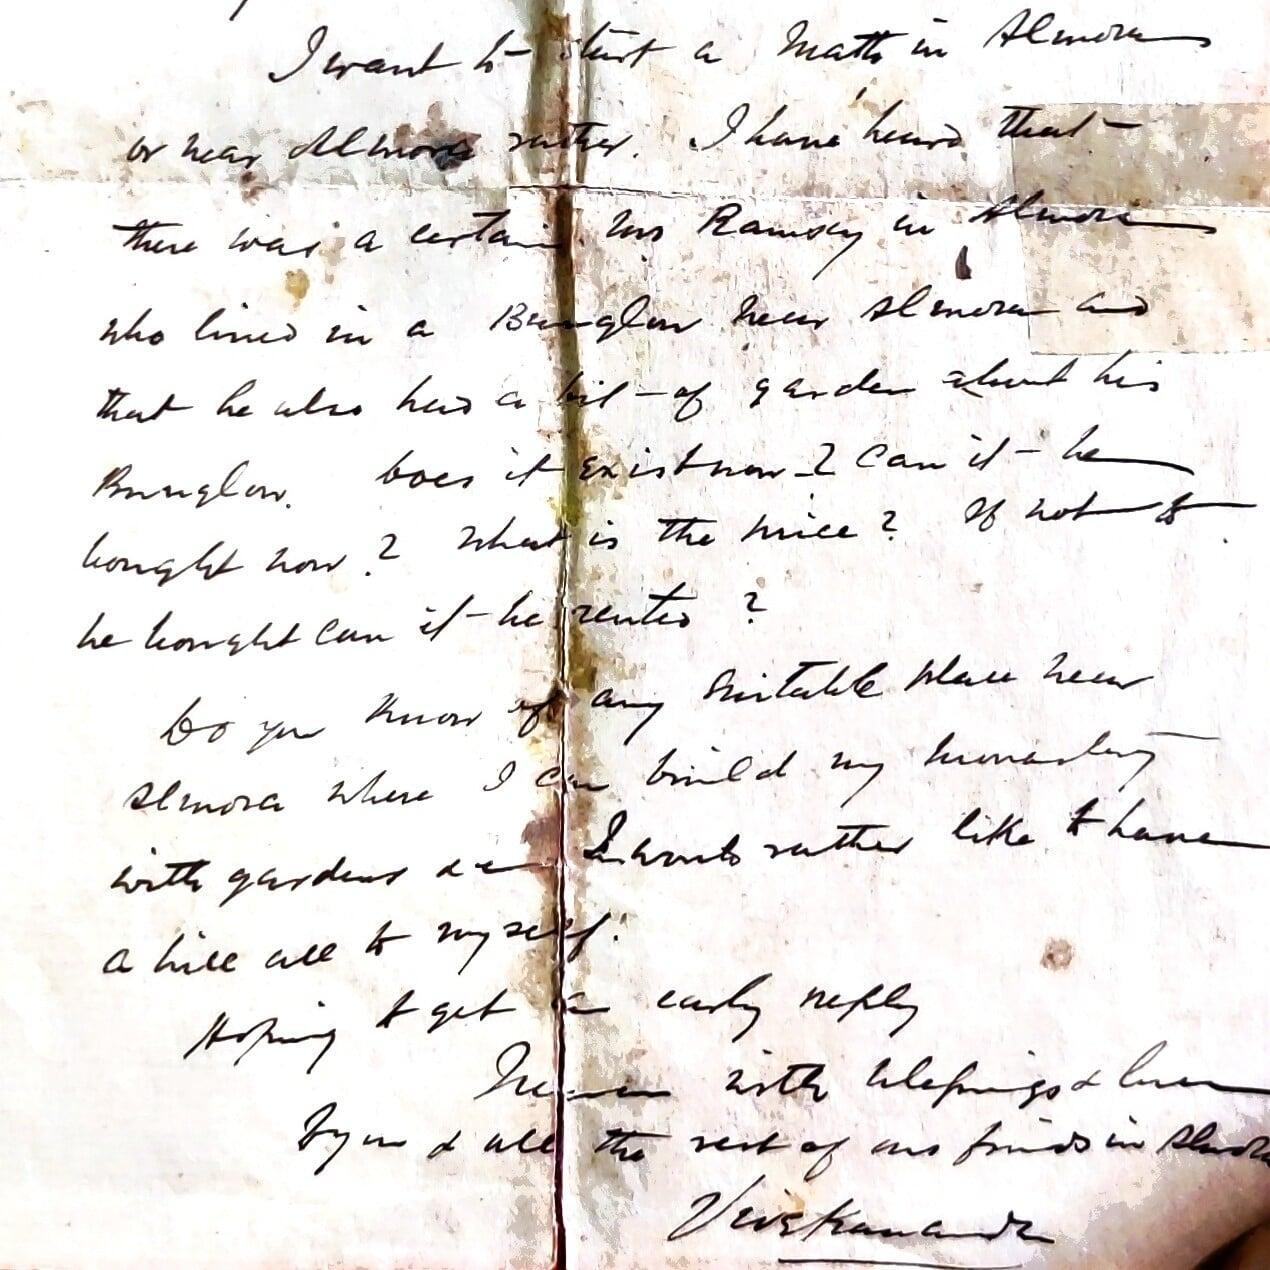 I want to start a Math in Almora
or near Almora rather. I have heard that
there was a certain Mr Ramsay in Almora
who lived in a Bunglow near Almora and
that he also had a bit of garden about his
Bunglow. Does it exist now? Can it be
bought now? What is the price? If not to
be bought can it be rented?
Do you know of any suitable place near
Almora where I can build my monastery
with gardens &c I would rather like to have
a hill all to myself.
Hoping to get an early reply
with blessings & love
To you & all the rest of our friends in Almora
Vivekananda